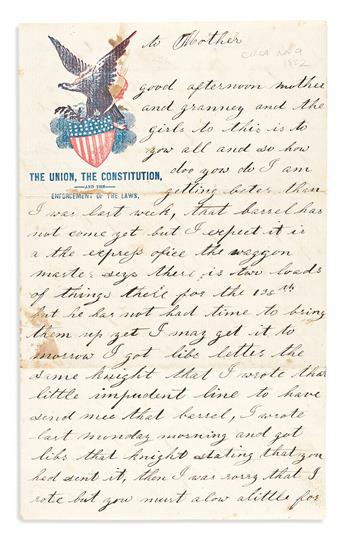 to Mother
CIRCA NOV 9
1862
good afternoon mother
and granney and the
girls to this is to
yow all and so how
doo yow do I am
THE UNION, THE CONSTITUTION,
AND THE
ENFORCEMENT OF THE LAWS.
getting beter than
I was last week, that barrel has
not come yet but I expect it is
a the express ofice the waggon
master seys there is two loads
of things there for the 136th
but he has not had time to bring
them up yet I may get it to
morrow I got libs letter the
same knight that I wrote that
little impudent line to have
send mee that barrel, I wrote
last monday morning and got
libs that knight stating that you
had sent it, then I was sorry that I
rote but you must alow alittle for